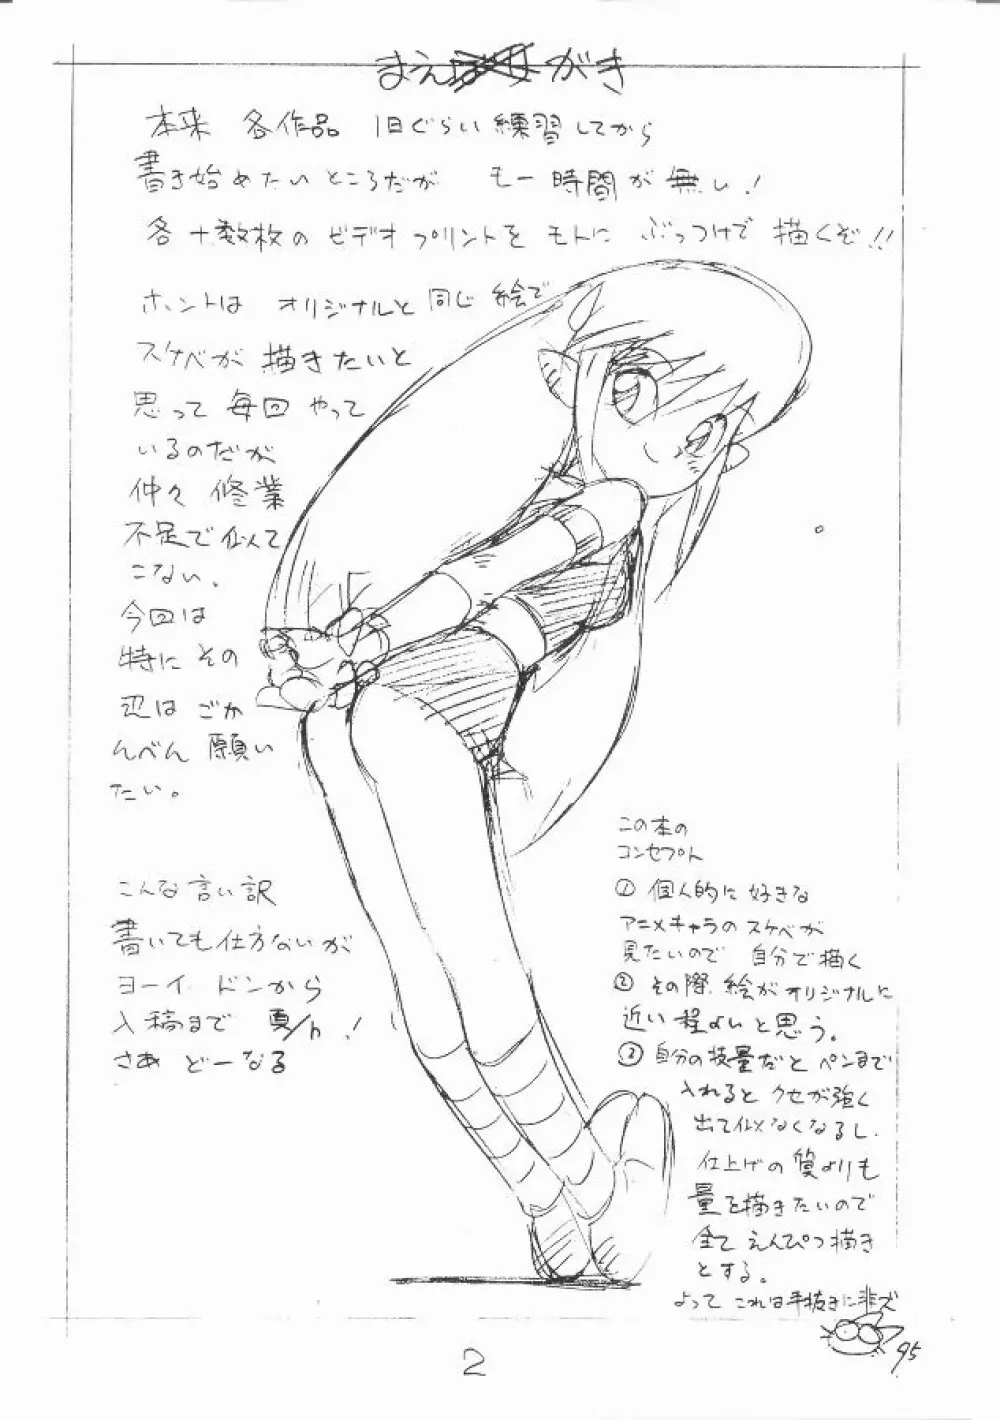 まえがき
本来 各作品 1日ぐらい練習してから
書き始めたいところだが もー時間が無い!
各十数枚のビデオプリントをモトに ぶっつけで描くぞ!!
ホントは オリジナルと同じ絵で
スケベが描きたいと
思って毎回やって
いるのだが
仲々修業
不足で似て
こない。
今回は
特にその
辺はごか
んべん願い
たい。
こんな言い訳
書いても仕方ないが
ヨーイ ドンから
入稿まで
さあ どーなる
この本の
コンセプト
① 個人的に好きな
アニメキャラのスケベが
見たいので 自分で描く
② その際 絵がオリジナルに
近い程よいと思う。
③ 自分の技量だとペンまで
入れるとクセが強く
出て似なくなるし.
仕上げの質よりも
量を描きたいので
全てえんぴつ描き
とする。
よって これは手抜きに非ズ
95
2